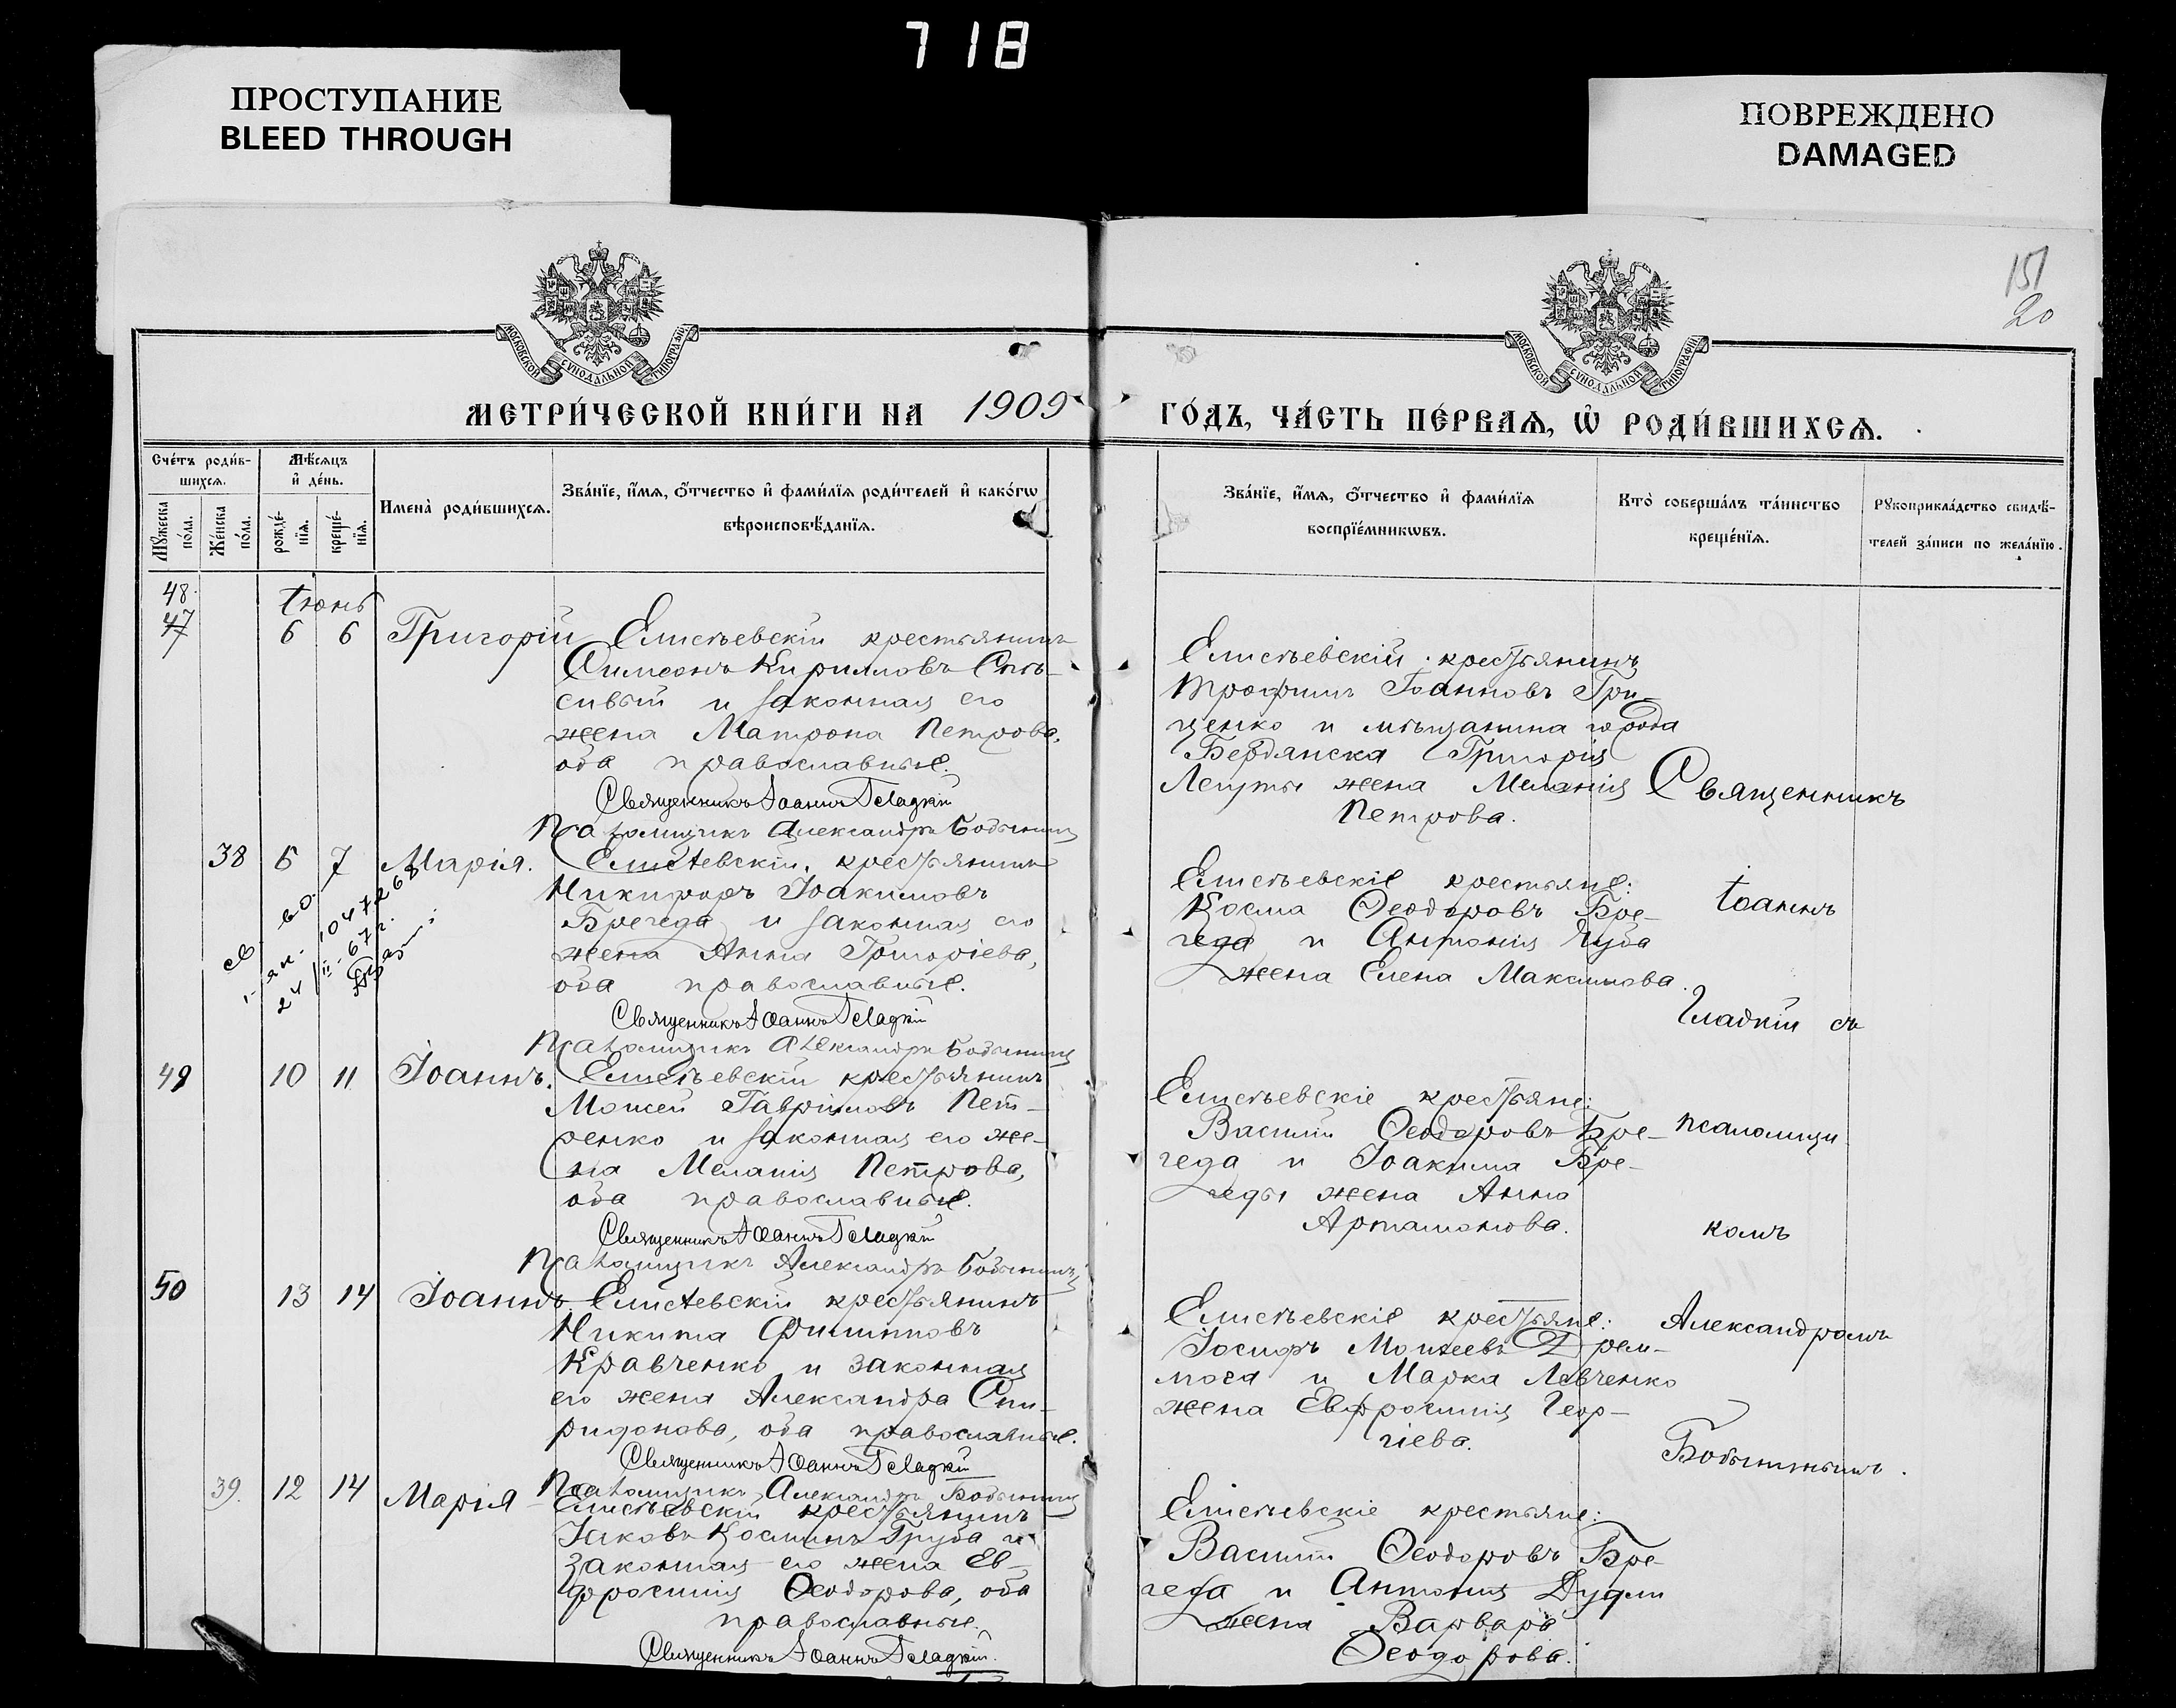 718
ПРОСТУПАНИЕ
BLEED THROUGH
ПОВРЕЖДЕНО
DAMAGED
151
20
МОСКОВСКОЙ СУНОДАЛЬНОЙ ТИПОГРАФІИ
МОСКОВСКОЙ СУНОДАЛЬНОЙ ТИПОГРАФІИ
МЕТРИ́ЧЕСКОЙ КНИ́ГИ НА 1909
ГО́ДЪ, ЧА́СТЬ ПЕ́РВАѦ, Ѡ҆ РОДИ́ВШИХСѦ.
Сче́тъ роди́в-
шихсѧ.
Мꙋжеска по́ла.
Же́нска по́ла.
Мѣ́сяцъ
и҆ де́нь.
рожде́-
нїѧ.
креще́-
нїѧ.
Имена̀ роди́вшихсѧ.
Зва́нїе, и҆́мѧ, ѻ҆́тчество и҆ фами́лїѧ роди́телей и҆ како́гѡ
вѣроисповѣ́данїѧ.
Зва́нїе, и҆́мѧ, ѻ҆́тчество и҆ фами́лїѧ
воспрїе́мникѡвъ.
Кто̀ соверша́лъ та́инство
креще́нїѧ.
Рꙋкоприкла́дство свидѣ́-
телей за́писи по жела́нїю.
48.
47
Іюнь
6 6 Григорій Елисѣевскій крестьянинъ
Симеонъ Кирилловъ Спѣ-
сивый и законная его
жена Матрона Петрова,
оба православные.
Священникъ Іоаннъ Гладкій
Псаломщикъ Александръ Бобынинъ
Елисѣевскій крестьянинъ
Трофимъ Іоанновъ Гри-
ценко и мѣщанина города
Бердянска Григорія
жена Меланія
Петрова.
38 6 7 Марія. Елисѣевскій крестьянинъ
Никифоръ Іоакимовъ
Брегеда и законная его
жена Анна Григоріева,
оба православные.
Священникъ Іоаннъ Гладкій
Псаломщикъ Александръ Бобынинъ
24/II-67 г.
Елисѣевскіе крестьяне:
Косма Ѳеодоровъ Бре-
геда и Антонія
жена Елена Максимова.
49 10 11 Іоаннъ. Елисѣевскій крестьянинъ
Моисей Гавріиловъ Пет-
ренко и законная его же-
на Меланія Петрова,
оба православные.
Священникъ Іоаннъ Гладкій
Псаломщикъ Александръ Бобынинъ
Елисѣевскіе крестьяне:
Василій Ѳеодоровъ Бре-
геда и Іоакима Бре-
геды жена Анна
Артамонова.
50 13 14 Іоаннъ. Елисѣевскій крестьянинъ
Никита Филипповъ
Кравченко и законная
его жена Александра Спи-
ридонова, оба православные.
Священникъ Іоаннъ Гладкій
Псаломщикъ Александръ Бобынинъ
Елисѣевскіе крестьяне:
Іосифъ Моисеевъ
и Марка Левченко
жена Евфросинія Геор-
гіева.
39. 12 14 Марія Елисѣевскій крестьянинъ
Іаковъ Косминъ Груба и
законная его жена Ев-
фросинія Ѳеодорова, оба
православные.
Священникъ Іоаннъ Гладкій.
Елисѣевскіе крестьяне:
Василій Ѳеодоровъ Бре-
геда и Антонія
жена Варвара
Ѳеодорова.
Священникъ
Іоаннъ
Гладкій съ
псаломщи-
комъ
Александромъ
Бобынинымъ.